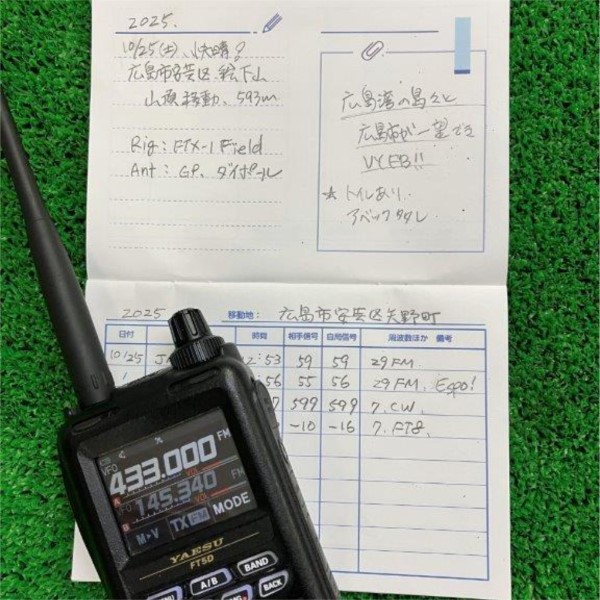 2025.
10/25(土)、快晴?
広島市安芸区 絵下山
山頂移動、593m
Rig: FTX-1 Field
Ant: GP、ダイポール
広島湾の島々と
広島市が一望でき
VY FB!!
☆ トイレあり、
アベック多し
2025 移動地: 広島市安芸区矢野町
日付 時間 相手信号 自局信号 周波数ほか 備考
10/25 :53 59 59 29 FM.
:56 55 56 29 FM, Espo!
599 599 7. CW.
-10 -16 7. FT8.
VFO 433.000 FM
VOL
145.340 FM
VOL
M▸V TX FM MODE
YAESU
FT5D
A/B BAND
BACK